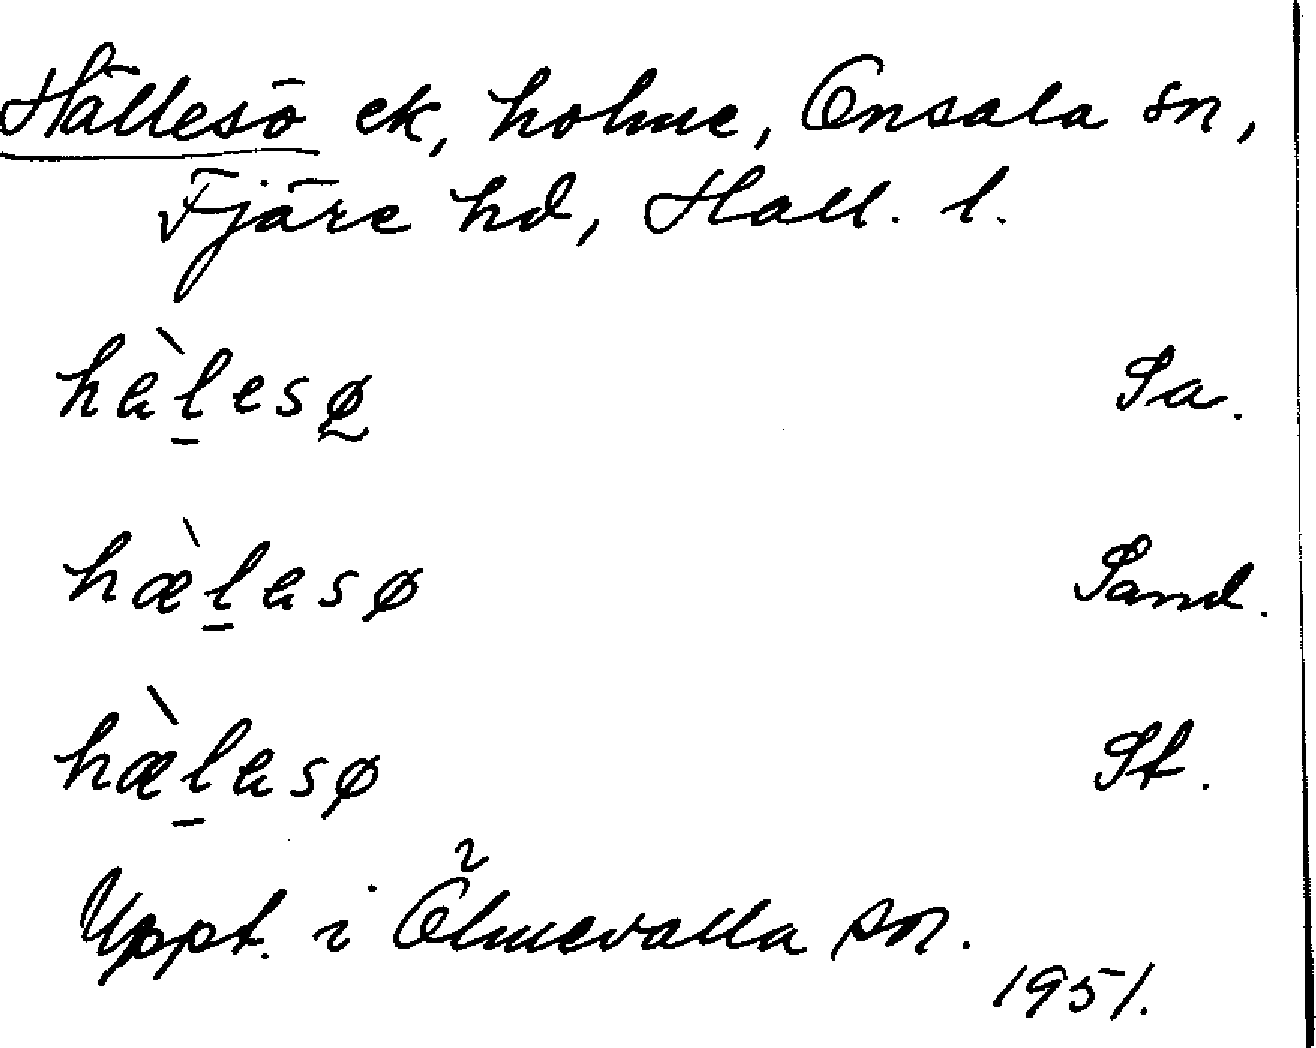 Hällesö ek, holme, Onsala sn,
Fjäre hd, Hall. l.
hæ̀l̠esø̰ Sa.
hæ̀l̠asø Sand.
hæ̀l̠asø St.
Uppt. i Ölmevalla sn.
1951.